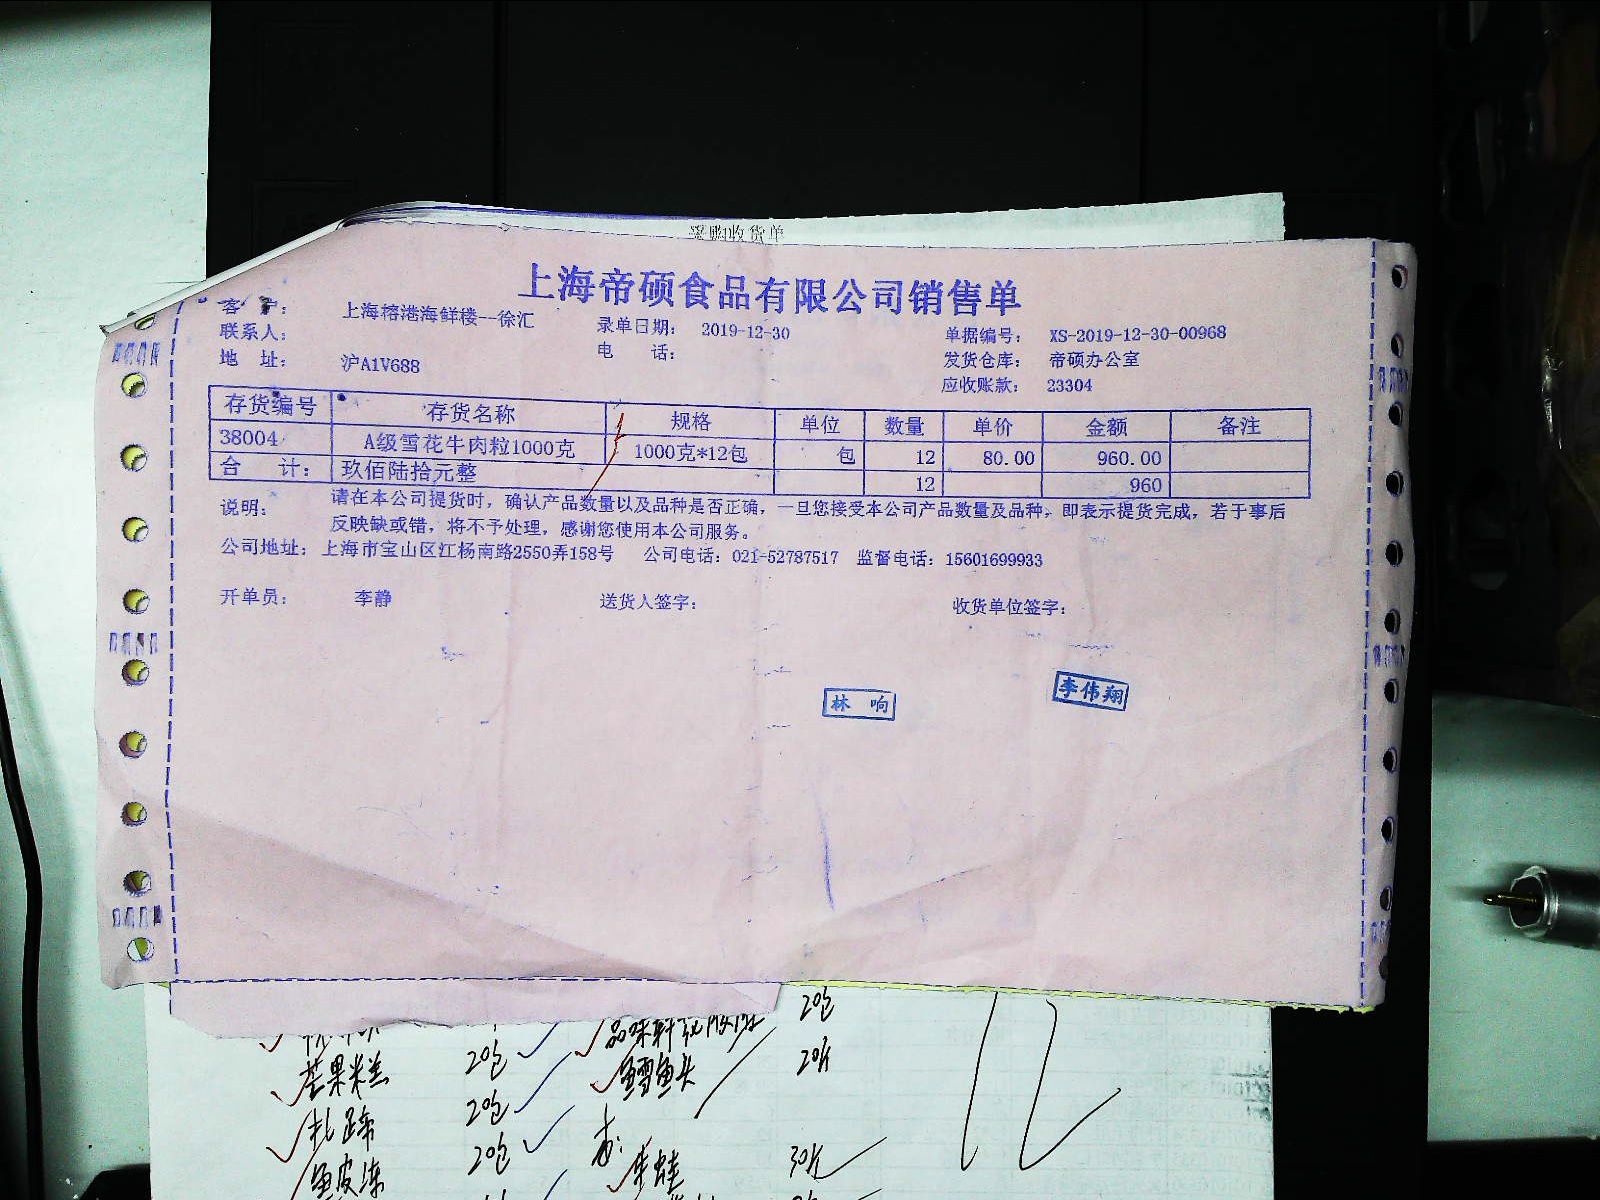 采购收货单
上海帝硕食品有限公司销售单
客 户： 上海榕港海鲜楼--徐汇 录单日期： 2019-12-30 单据编号： XS-2019-12-30-00968
联系人： 电 话： 发货仓库： 帝硕办公室
地 址： 沪A1V688 应收账款： 23304
存货编号 存货名称 规格 单位 数量 单价 金额 备注
38004 A级雪花牛肉粒1000克 1000克*12包 包 12 80.00 960.00
合 计： 玖佰陆拾元整 12 960
说明： 请在本公司提货时，确认产品数量以及品种是否正确，一旦您接受本公司产品数量及品种，即表示提货完成，若于事后
反映缺或错，将不予处理，感谢您使用本公司服务。
公司地址：上海市宝山区江杨南路2550弄158号 公司电话：021-52787517 监督电话：15601699933
开单员： 李静 送货人签字： 收货单位签字：
林 响 李伟翔
20包
芒果米糕 20包 鱼雪鱼头 20斤
扎蹄 20包
鱼皮冻 20包 牛蛙 30斤